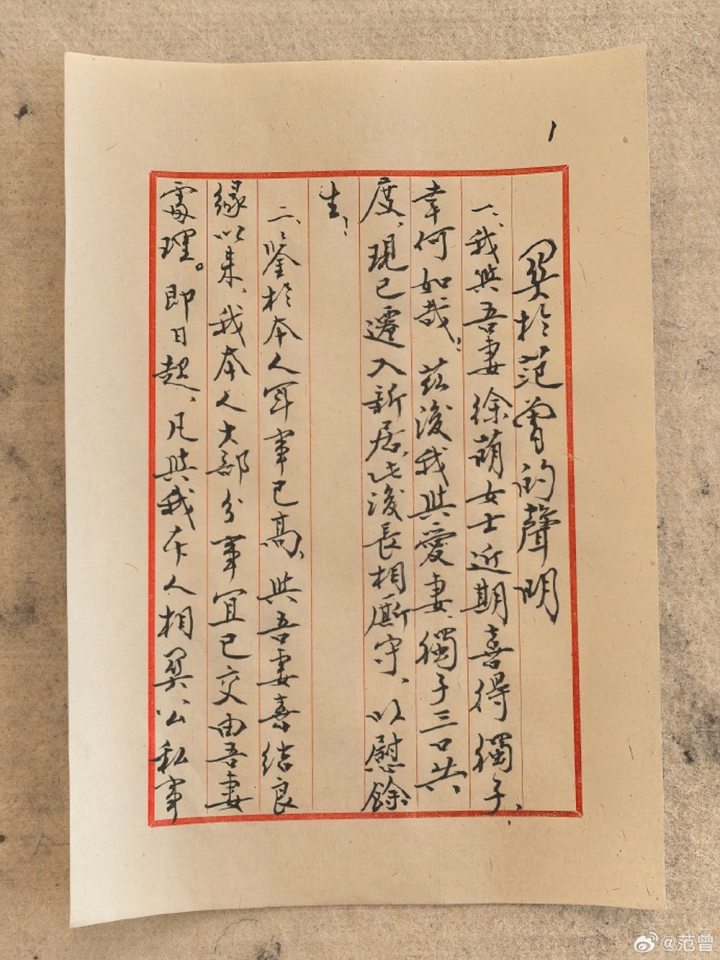 1
関於范曾的聲明
一、我與吾妻徐萌女士近期喜得獨子，
幸何如哉！茲後我與愛妻、獨子三口共
度，現已遷入新居，此後長相廝守，以慰餘
生！
二、鉴於本人年事已高，與吾妻喜结良
緣以来，我本人大部分事宜已交由吾妻
處理。即日起，凡與我本人相関公私事
@范曾